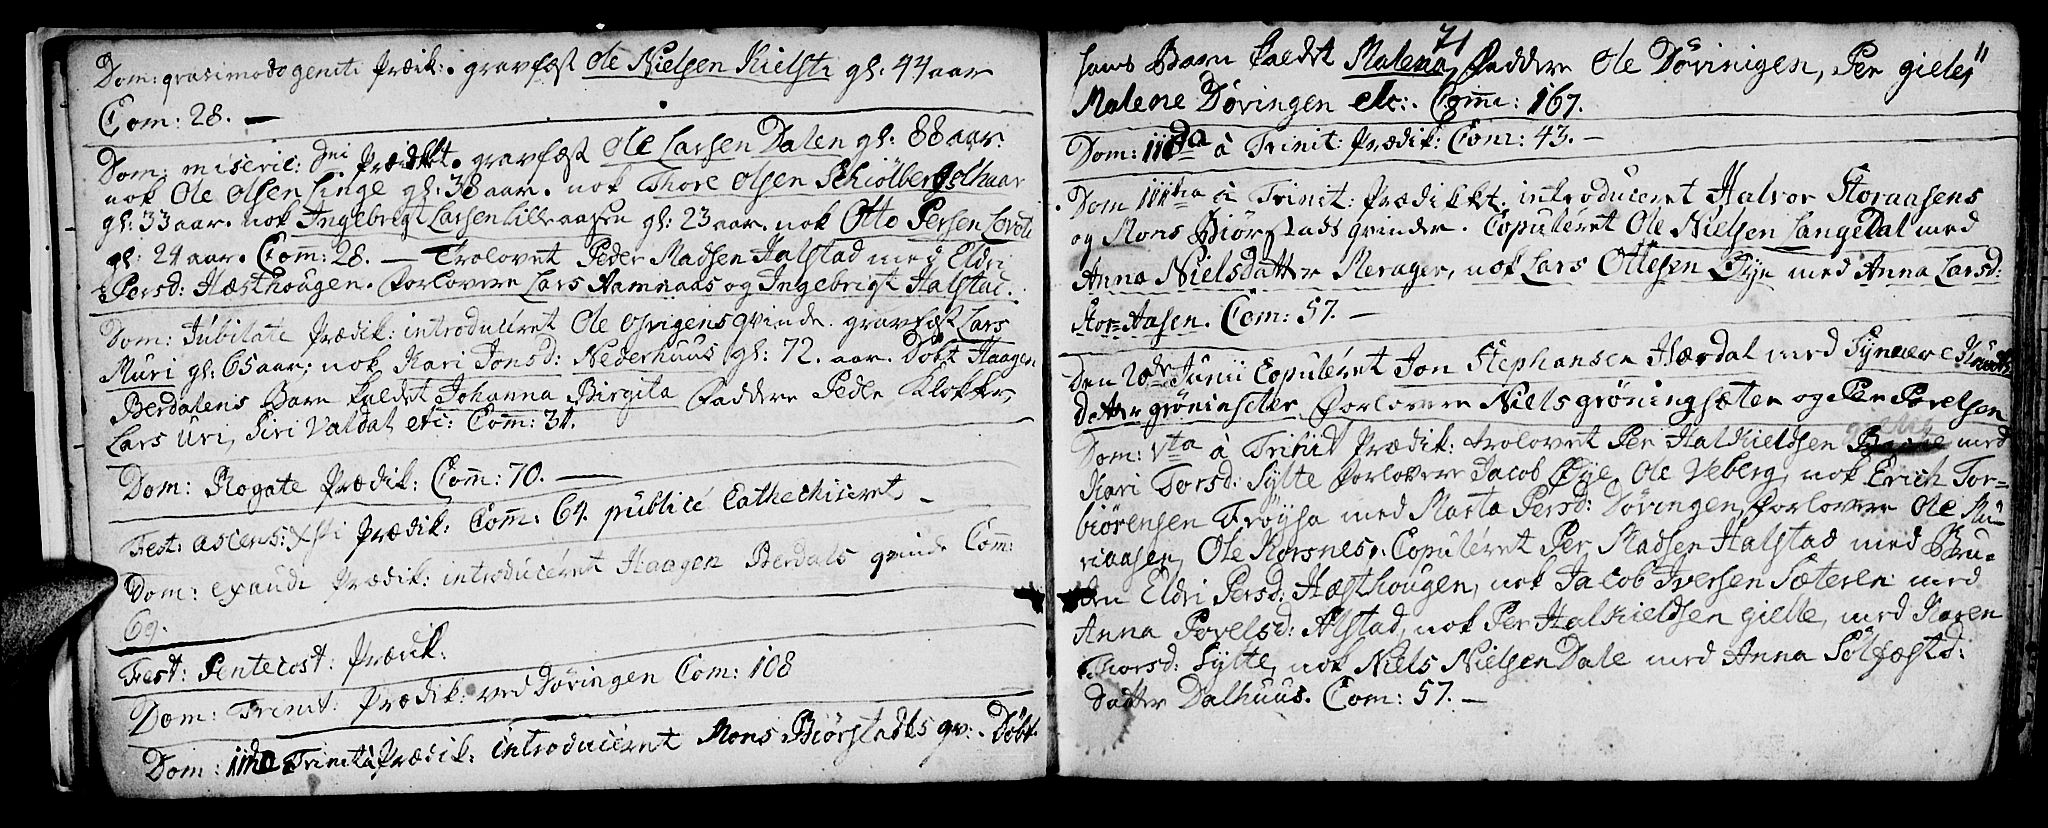 Dom: qvasimodogeniti Prædik: gravfæst Ole Nielsen Kielsti gl: 44 aar
Com: 28. —
Dom: miseric: dni Prædikkt. gravfæst Ole Larsen Dalen gl: 88 aar.
nok Ole Olsen Linge gl: 38 aar. nok Thore Olsen Schiølbergs
gl: 33 aar. nok Ingebrigt Larsen Lilleaasen gl: 23 aar. nok Otto Persen
gl: 24 aar. Com̄: 28. — Trolovet Peder Madsen Halstad med Eldri
Persd: Hæsthougen. Forlovere Lars Aamnaas og Ingebrigt Halstad.
Dom: Jubilate Prædik: introduceret Ole qvinde. gravfæst Lars
Muri gl: 65 aar, nok Kari Jonsd: Nederhuus gl: 72. aar. Døbt Haagen
Berdalens Barn kaldet Johanna Birgita Faddere Peder Klokker,
Lars Uri, Siri Valdal etc: Com̄: 31.
Dom: Rogate Prædik: Com̄: 70. —
Fest: ascens: Xsti Prædik: Com̄: 64. publicé Cathechiseret —
Dom: exaudi Prædik: introduceret Haagen Berdals qvinde Com̄:
69.
Fest: Pentecost: Prædik:
Dom: Trinit: Prædik: ved Døvingen Com: 108
Dom: IIda Trinit: Prædik: introduceret Mons Biørstadts qv: Døbt
71
hans Barn kaldet Malena, Faddere Ole Døvingen, Per gielle,
Malene Døvingen etc: Com̄: 167.
Dom: IIIda à Trinit: Prædik: Com: 43. —
Dom IIIItia à Trinit: Prædikkt. introduceret Halvor Storaasens
og Mons Biørstads qvinder. Copuleret Ole Nielsen Langedal med
Anna Nielsdatter Merager, nok Lars Ottesen Øye med Anna Larsd:
Stor-Aasen. Com: 57. —
Den 20de Junii Copuleret Jon Stephansen Hærdal med Synnere Knuds
datter Forlovere Niels grøningsæter og Per Povelsen
Dom: Vta à Trinit Prædik: trolovet Per Halkieldsen med
Kari Torsd: Sylte Forlovere Jacob Øye, Ole Veberg, nok Erich Tor-
biørensen Frøysa med Marta Persd: Døvingen, Forlovere Ole Mu-
riaasen, Ole Korsnes. Copuleret Per Madsen Halstad med Bru-
den Eldri Persd: Hæsthougen, nok Jacob Iversen Sæteren med
Anna Povelsd: Alstad, nok Per Halkieldsen gielle, med Karen
Thorsd: Sylte, nok Niels Nielsen Dale med Anna Sølfæstd:
datter Dalhuus. Com: 57. —